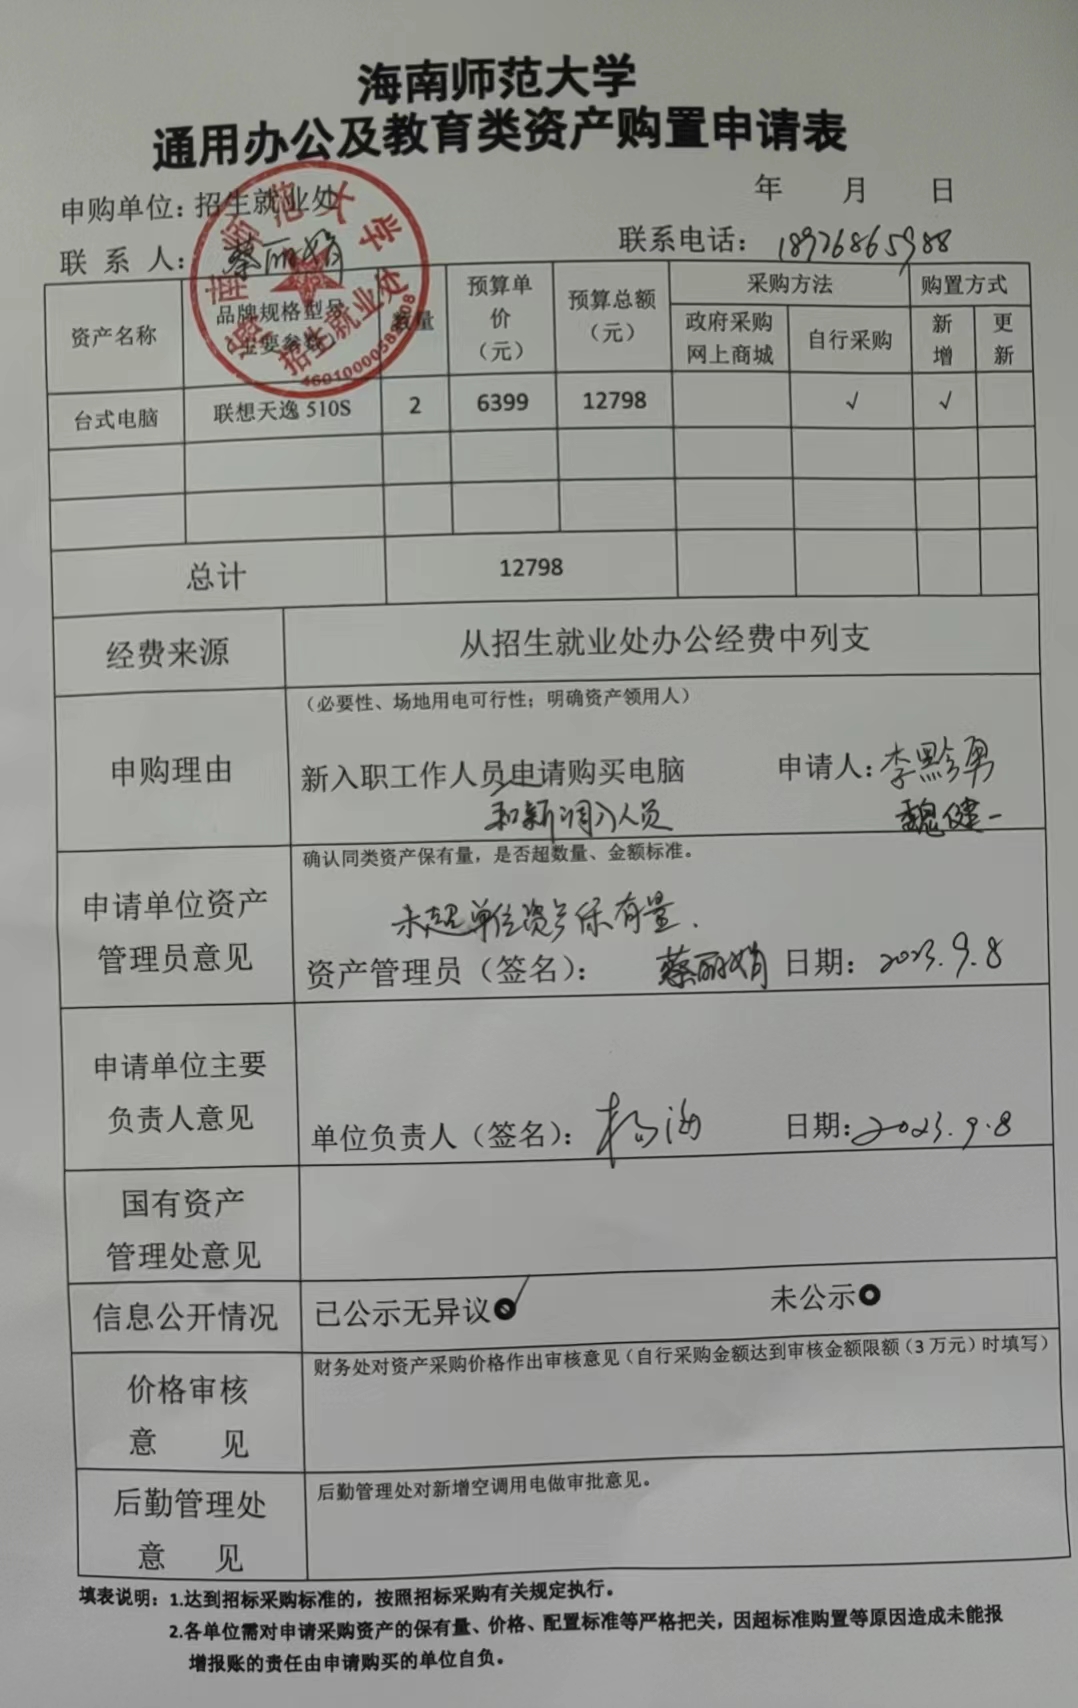 海南师范大学
通用办公及教育类资产购置申请表
年 月 日
申购单位：招生就业处
联 系 人：蔡丽娟
联系电话：18976865988
南师范大学
招生就业处
资产名称 品牌规格型号 数量 预算单价（元） 预算总额（元） 采购方法 购置方式
主要参数）
政府采购网上商城 自行采购 新增 更新
台式电脑 联想天逸 510S 2 6399 12798 √ √
总计 12798
经费来源 从招生就业处办公经费中列支
申购理由 （必要性、场地用电可行性；明确资产领用人）
新入职工作人员申请购买电脑 申请人：李黔勇
和新调入人员 魏健一
申请单位资产管理员意见 确认同类资产保有量，是否超数量、金额标准。
未超单位资产保有量.
资产管理员（签名）： 蔡丽娟 日期：2023.9.8
申请单位主要负责人意见
单位负责人（签名）：杨海 日期：2023.9.8
国有资产
管理处意见
信息公开情况 已公示无异议 未公示
价格审核意 见 财务处对资产采购价格作出审核意见（自行采购金额达到审核金额限额（3 万元）时填写）
后勤管理处意 见 后勤管理处对新增空调用电做审批意见。
填表说明：1.达到招标采购标准的，按照招标采购有关规定执行。
2.各单位需对申请采购资产的保有量、价格、配置标准等严格把关，因超标准购置等原因造成未能报
增报账的责任由申请购买的单位自负。